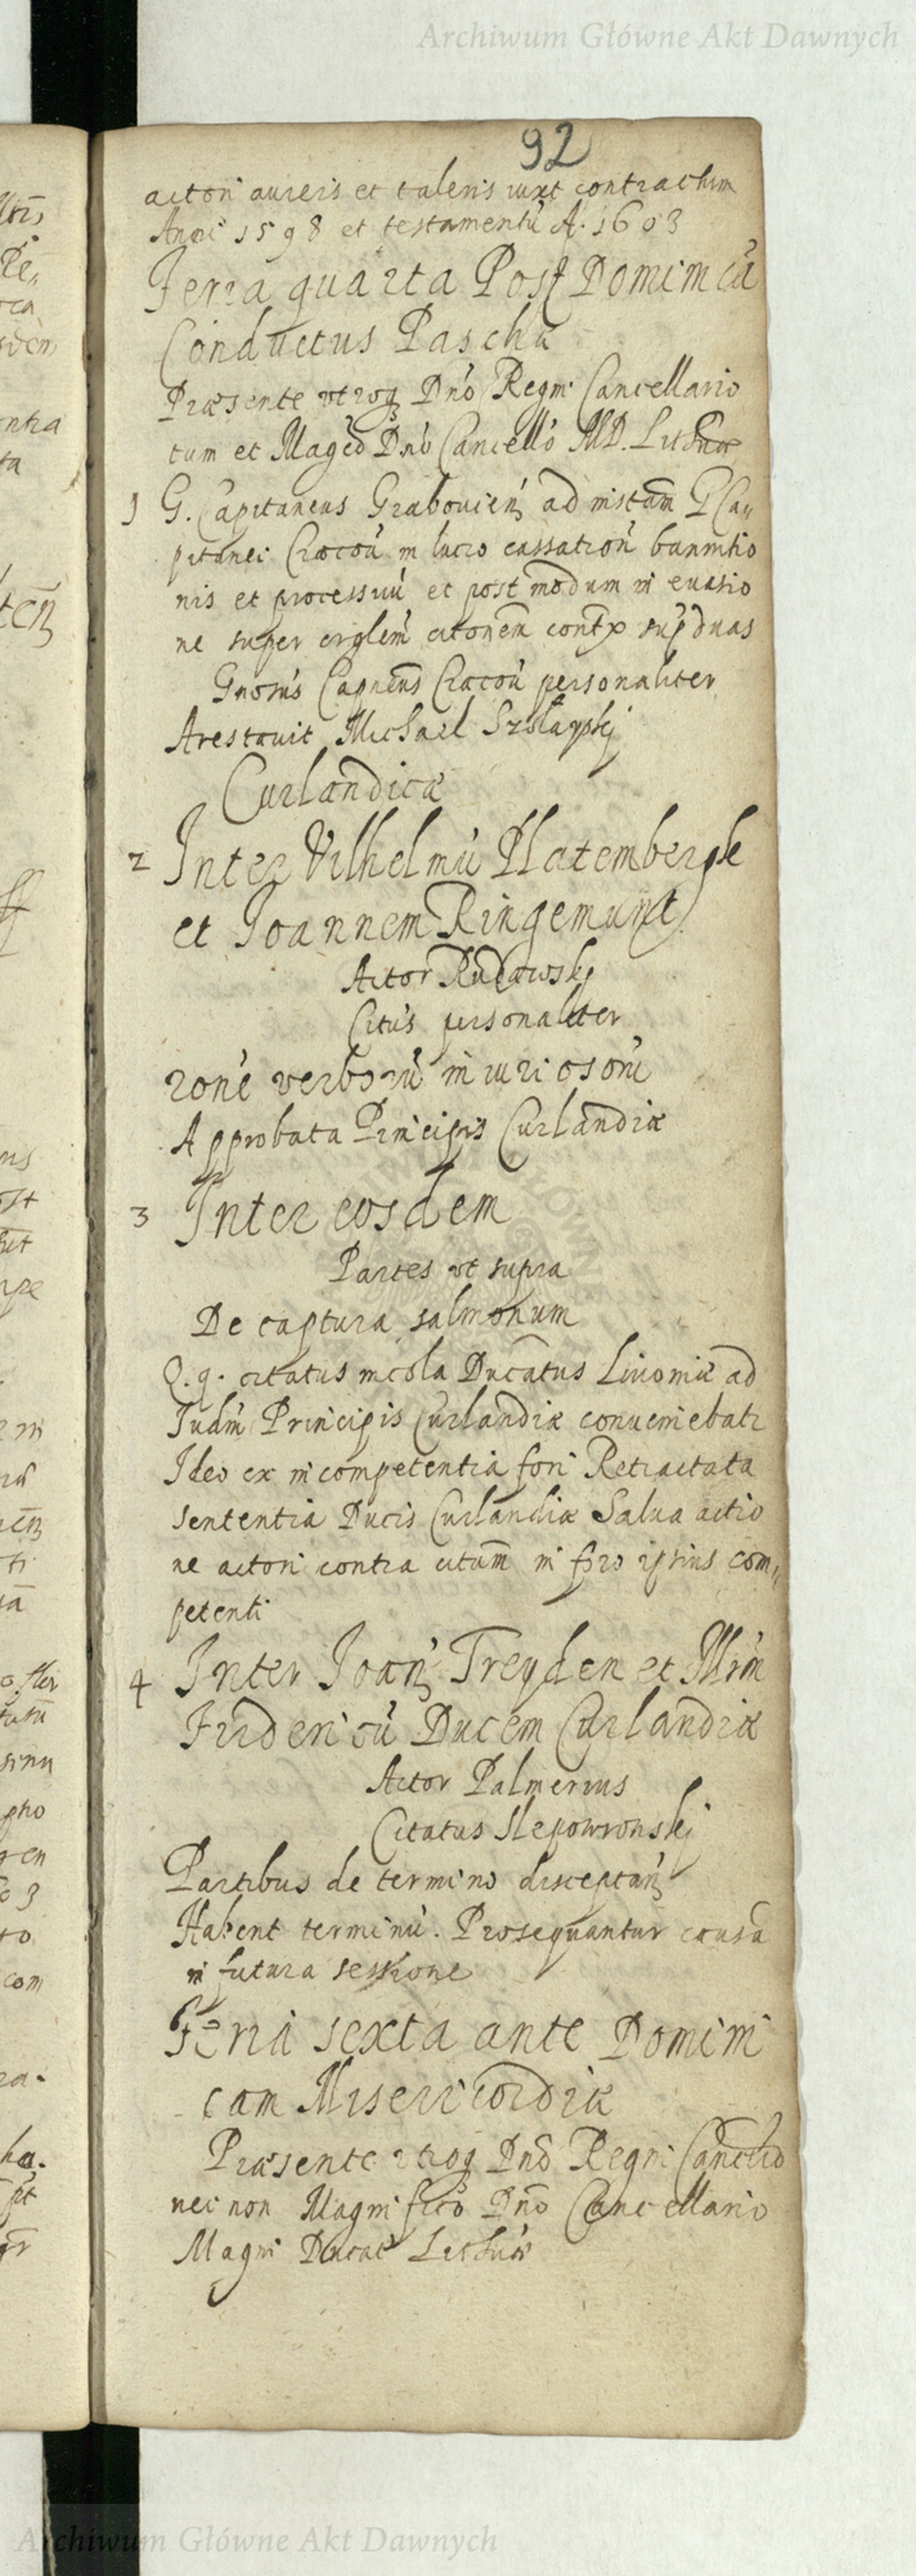 Archiwum Główne Akt Dawnych
92
actori aureis et taleris iuxt contractum
Anni 1598 et testamentũ A. 1603
Feria quarta Post Dominicã
Conductus Pascha
Præsente utroq Dnõ Regni Cancellario
tum et Magco Dnõ Cancellõ M.D. Lithuæ
1 G. Capitaneus Grabovien ad instam G Ca„
pitanei Cracoũ in lucro cassation bannitio
nis et processuũ et post modum in evasio
ne super citonem sup duas
Gnosus Capneus Cracoũ personaliter
Arestavit Michael
Curlandica
2 Inter Vilhelmũ Platembergk
et Joannem Ringemunt
Actor Rudawskj
Citus personaliter
rone verborũ iniuriosorũ
Approbata Principis Curlandiæ
3 Inter eosdem
Partes ut supra
De captura salmonum
Q. q. citatus incola Ducatus Livoniæ ad
Iudm Principis Curlandiæ conveniebatr
Ideo ex incompetentia fori Retractata
sententia Ducis Curlandiæ Salva actio
ne actori contra citum in foro ipsius com„
petenti
4 Inter Joan Treyden et Illrm
Fridericũ Ducem Curlandiæ
Actor Palmerius
Citatus Slepowronskj
Partibus de termino disceptan
Habent terminũ. Prosequantur causã
in futura sessione
Feria sexta ante Domini
cam Misericordiæ
Præsente utroq Dnõ Regni Cancllo
nec non Magnifico Dno Cancellario
Magni Ducat Lithuæ
Archiwum Główne Akt Dawnych